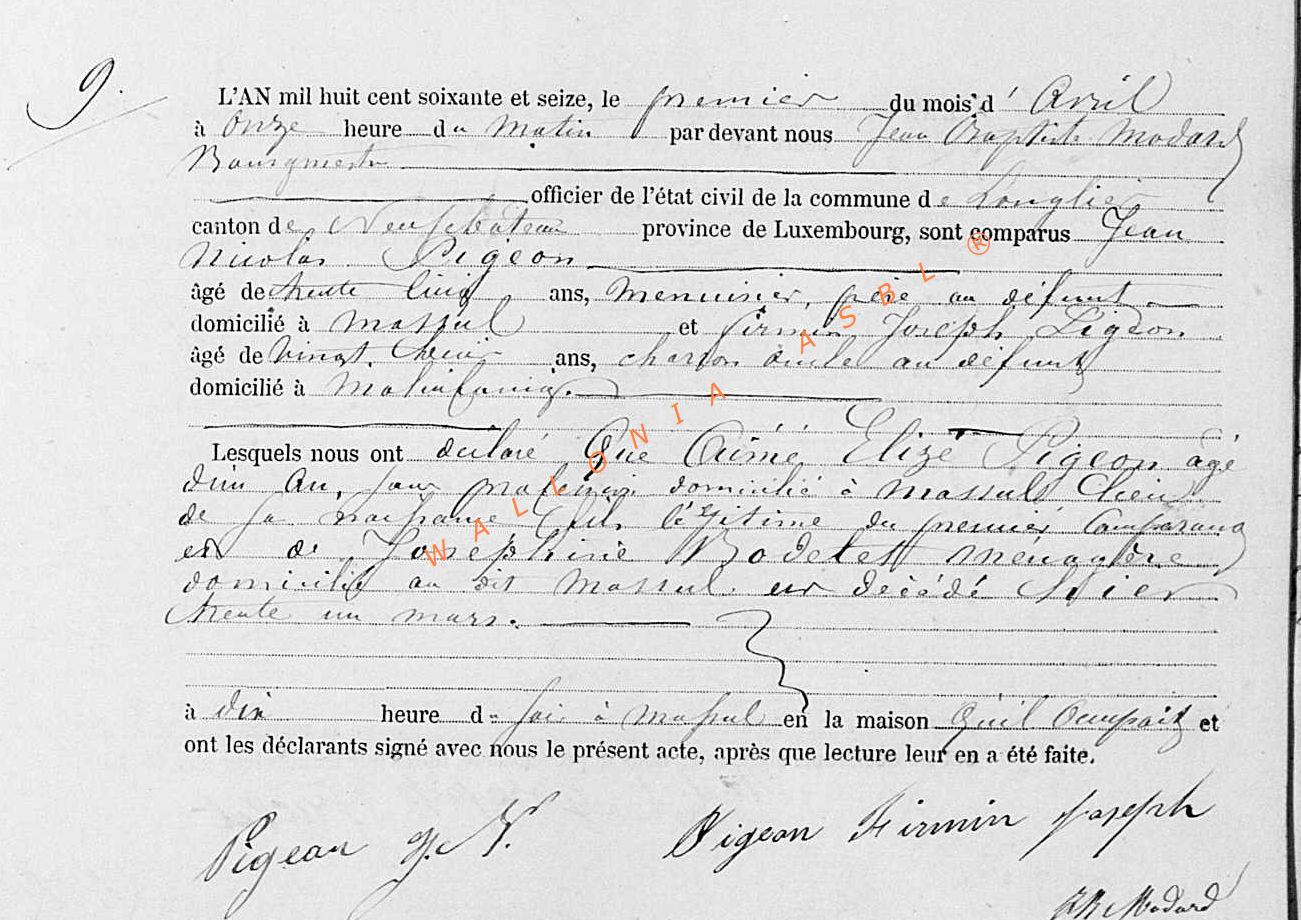 9.
L'AN mil huit cent soixante et seize, le premier du mois d' Avril
à Onze heure du Matin par devant nous Jean Baptiste Modard
Bourgmestre
officier de l'état civil de la commune de Longlier
canton de Neufchâteau province de Luxembourg, sont comparus Jean
Nicolas Pigeon
âgé de trente cinq ans, menuisier, père au défunt
domicilié à Massul et Firmin Joseph Pigeon
âgé de vingt ans, charron oncle au défunt
domicilié à
Lesquels nous ont déclaré Que Aimé Elize Pigeon agé
d'un An, sans profession domicilié à Massul lieu
de sa naissance fils légitime du premier Comparant
et de Joséphine Bodelet ménagère
domicilié au dit Massul et décédé hier
trente un mars.
à dix heure du soir à Massul en la maison Qu'il Occupait et
ont les déclarants signé avec nous le présent acte, après que lecture leur en a été faite.
Pigeon J. N. Pigeon Firmin Joseph
JB Modard
WALLONIA ASBL ®